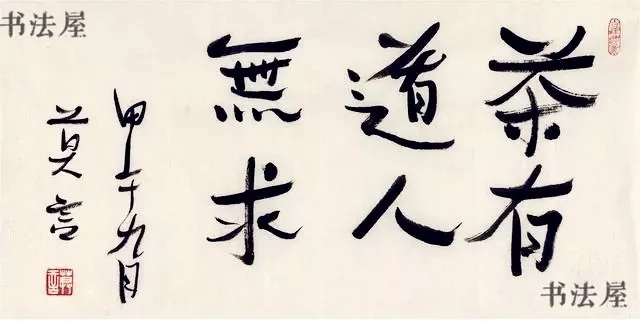 书法屋
茶有
道人
無求
甲午九月
莫言
书法屋